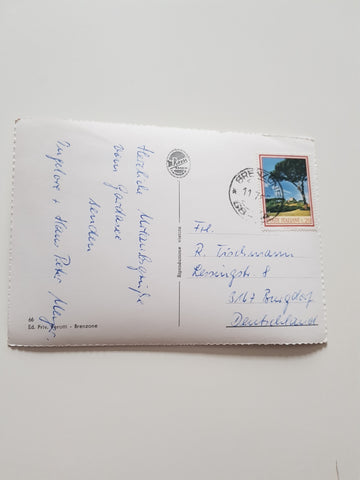 Herzliche Urlaubsgrüße
vom Gardasee
senden
Ingelore + Hans Peter Meyer
66
Ed. Priv. Perotti - Brenzone
Riproduzione vietata
BRENZONE
11.7
POSTE ITALIANE L. 20
Frl.
R. Tischmann
Lessingstr. 8
3167 Burgdorf
Deutschland